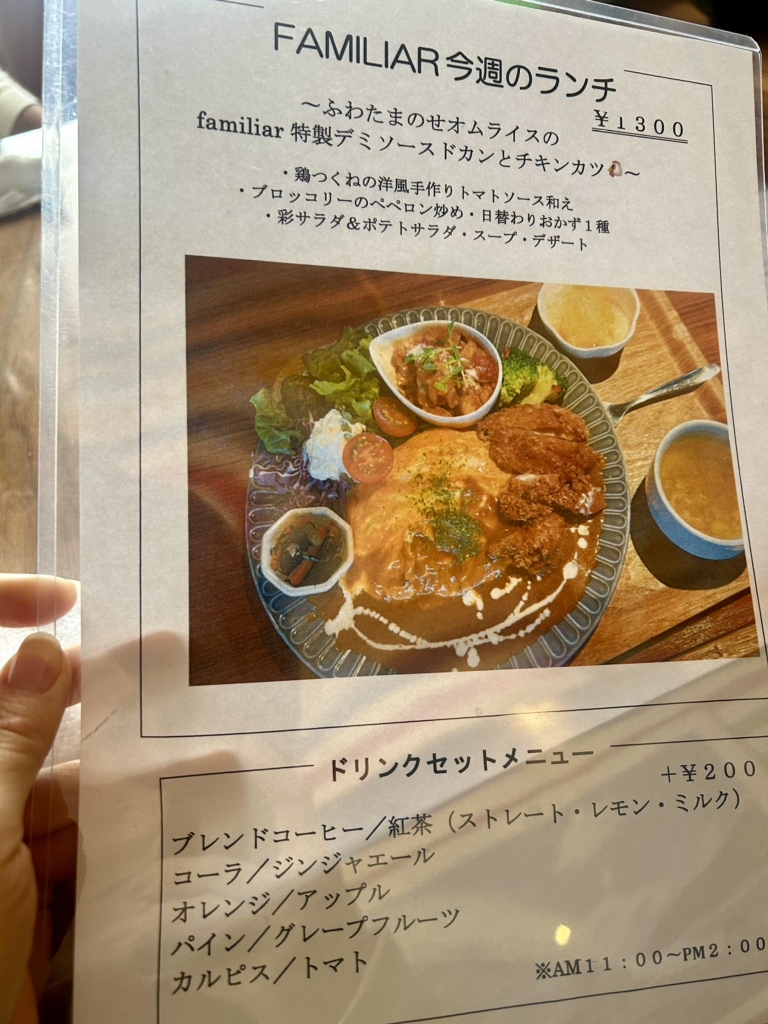 FAMILIAR今週のランチ
¥1300
～ふわたまのせオムライスの
familiar 特製デミソースドカンとチキンカツ🐔～
・鶏つくねの洋風手作りトマトソース和え
・ブロッコリーのペペロン炒め・日替わりおかず1種
・彩サラダ＆ポテトサラダ・スープ・デザート
ドリンクセットメニュー
＋¥200
ブレンドコーヒー／紅茶（ストレート・レモン・ミルク）
コーラ／ジンジャエール
オレンジ／アップル
パイン／グレープフルーツ
カルピス／トマト
※AM11：00～PM2：00